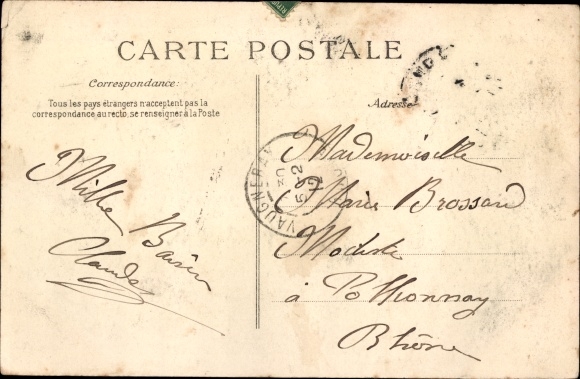 CARTE POSTALE
Correspondance:
Tous les pays étrangers n'acceptent pas la
correspondance au recto, se renseigner à la Poste
Adresse
Mille Baisers
Claude
Mademoiselle
Marie Brossard
Modiste
à Pollionnay
Rhône
VAUGNERAY
5-2
12